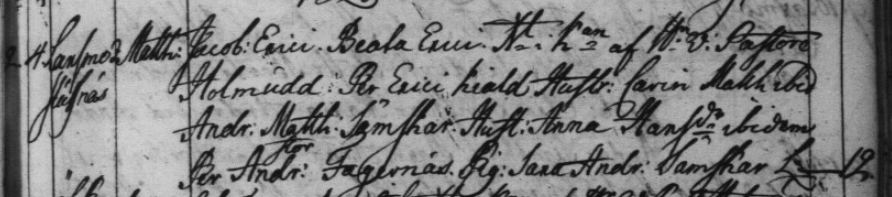 2. 4. Matth: Jacob: Erici. Beata Erici. Xt: af Hr: V: Pastore
Holmudd. Per Erici hiald Hustr: Carin Matth ibid
Andr: Matth: Sämskar. Hust: Anna Hans dr ibidem
Per Andr: Fagernäs. Pig: Sara Andr: Sämskar 12.